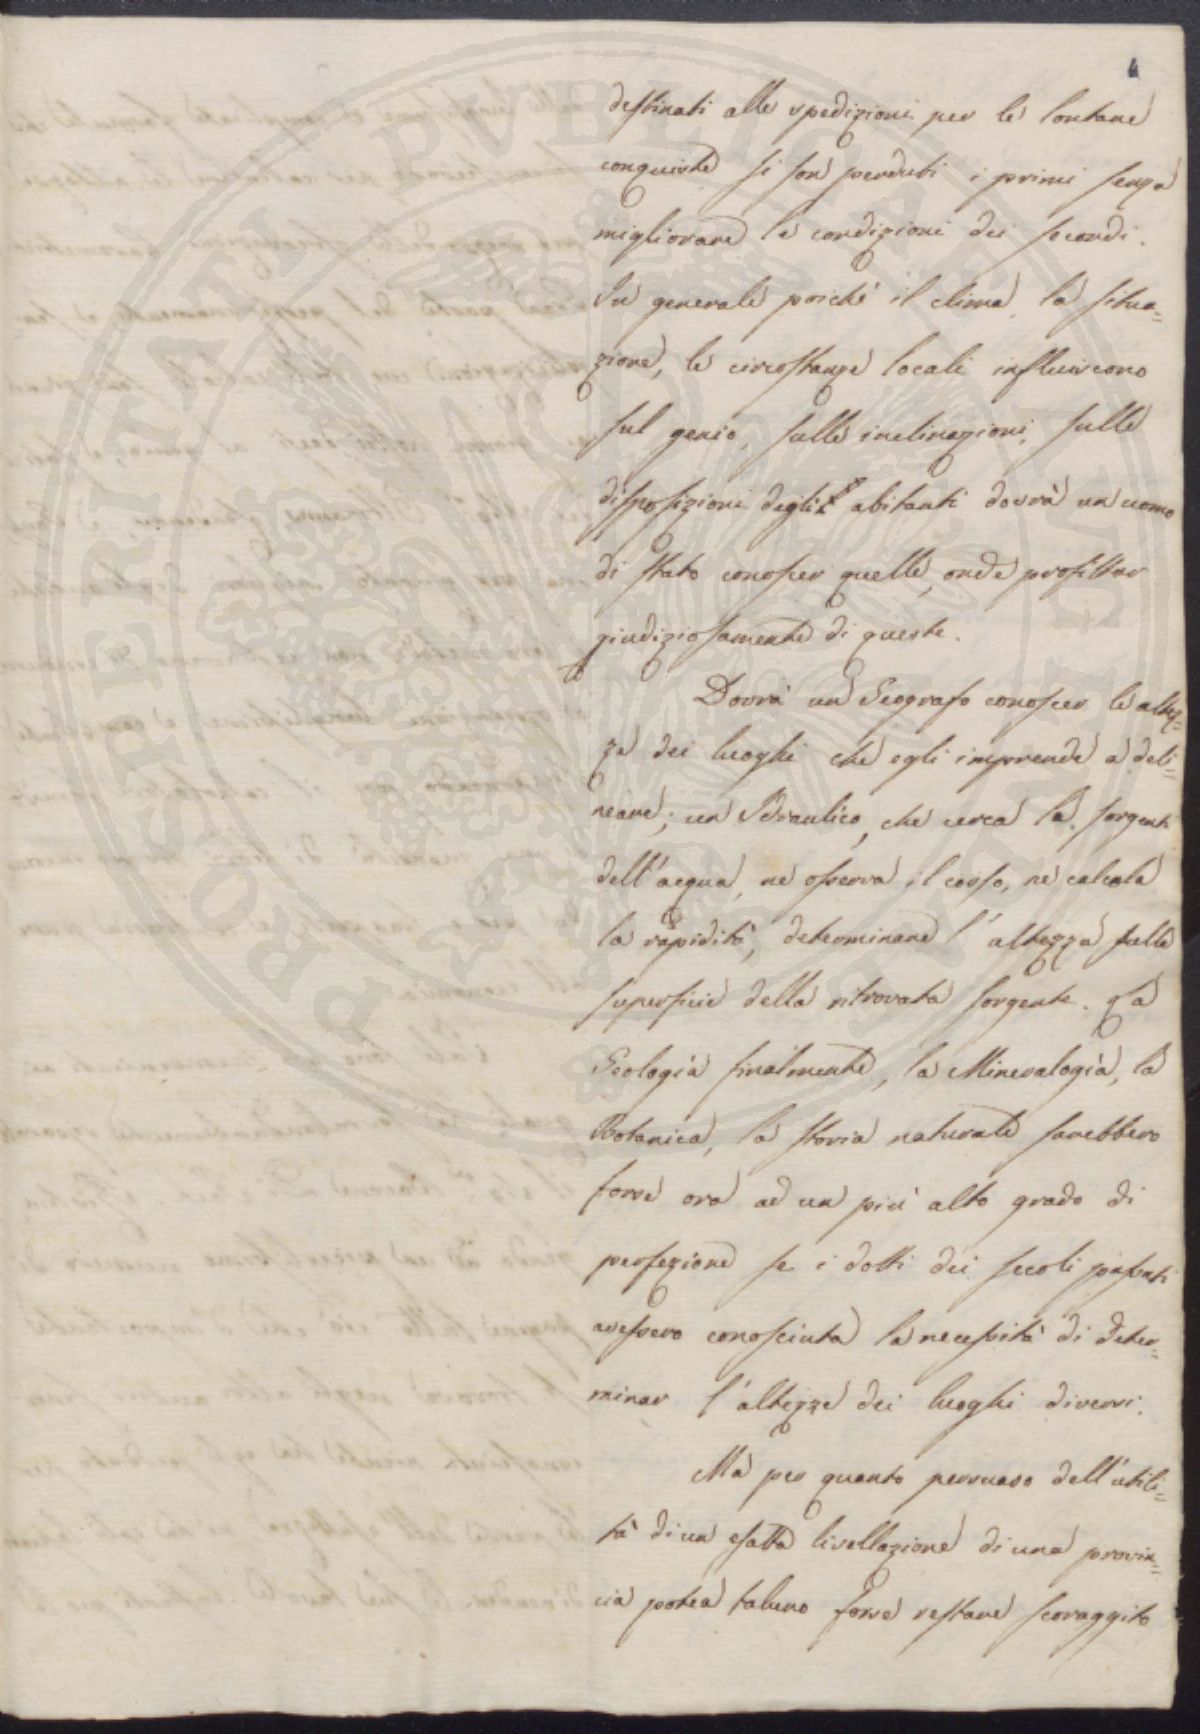 4
destinati alle spedizioni per le lontane
conquiste si son perduti i primi senza
migliorare le condizioni dei secondi.
In generale poichè il clima, la situa=
zione, le circostanze locali influiscono
sul genio, sulle inclinazioni, sulle
disposizioni degli abitanti dovrà un uomo
di stato conoscer quelle, onde profittar
giudiziosamente di queste.
Dovrà un Geografo conoscer le altez=
ze dei luoghi che egli imprende a deli=
neare; un Idraulico, che cerca la sorgente
dell'acqua, ne osserva il corso, ne calcola
la rapidità, determinare l'altezza sulle
superficie della ritrovata sorgente. La
Geologia finalmente, la Mineralogia, la
Botanica, la storia naturale sarebbero
forse ora ad un più alto grado di
perfezione se i dotti dei secoli passati
avessero conosciuta la necessità di deter=
minar l'altezze dei luoghi diversi.
Ma per quanto persuaso dell'utili=
tà di una esatta livellazione di una provin=
cia potea taluno forse restare scoraggito
PROSPERITATI PUBLICAE AUGENDAE